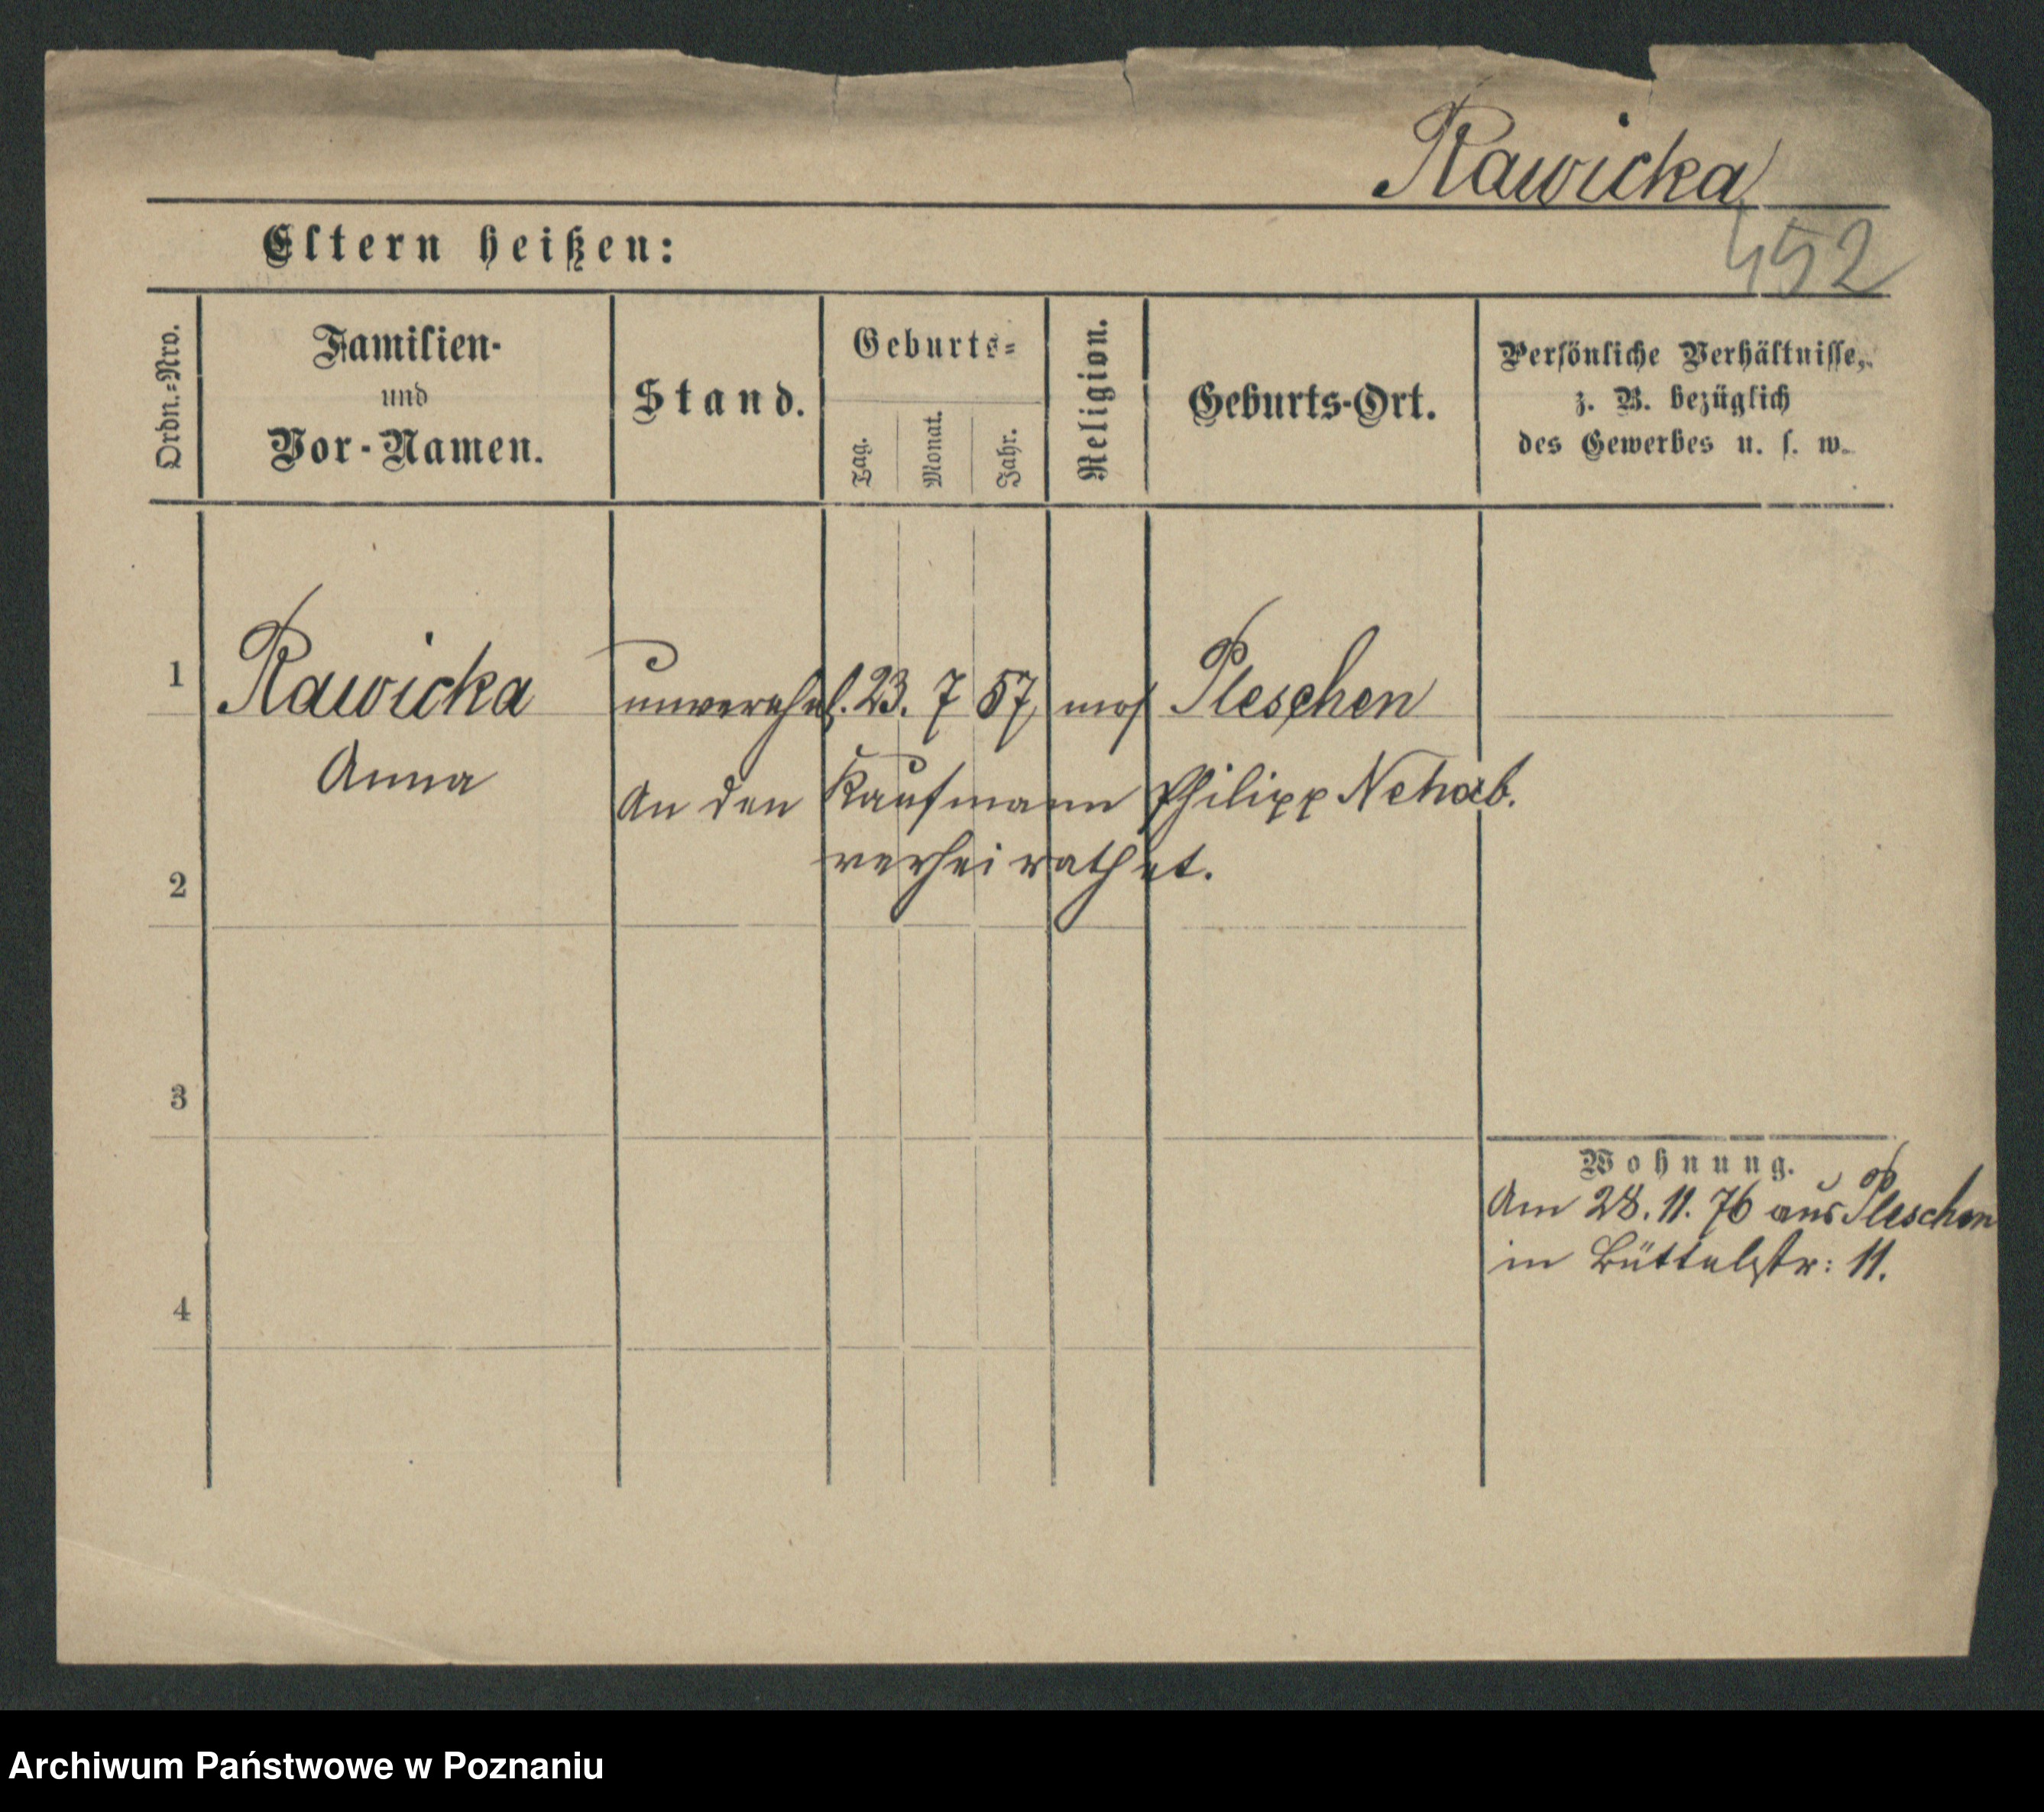 Rawicka
452
Eltern heißen:
Ordn.=Nro.
Familien-
und
Vor-Namen.
Stand.
Geburts=
Tag.
Monat.
Jahr.
Religion.
Geburts-Ort.
Persönliche Verhältnisse,
z. B. bezüglich
des Gewerbes u. s. w.
1 Rawicka unverehel. 23. 7 57 mos Pleschen
Anna
An den Kaufmann Philipp Nehab.
verheirathet.
2
3
Wohnung.
Am 28. 11. 76 aus Pleschen
in Büttelstr: 11.
4
Archiwum Państwowe w Poznaniu